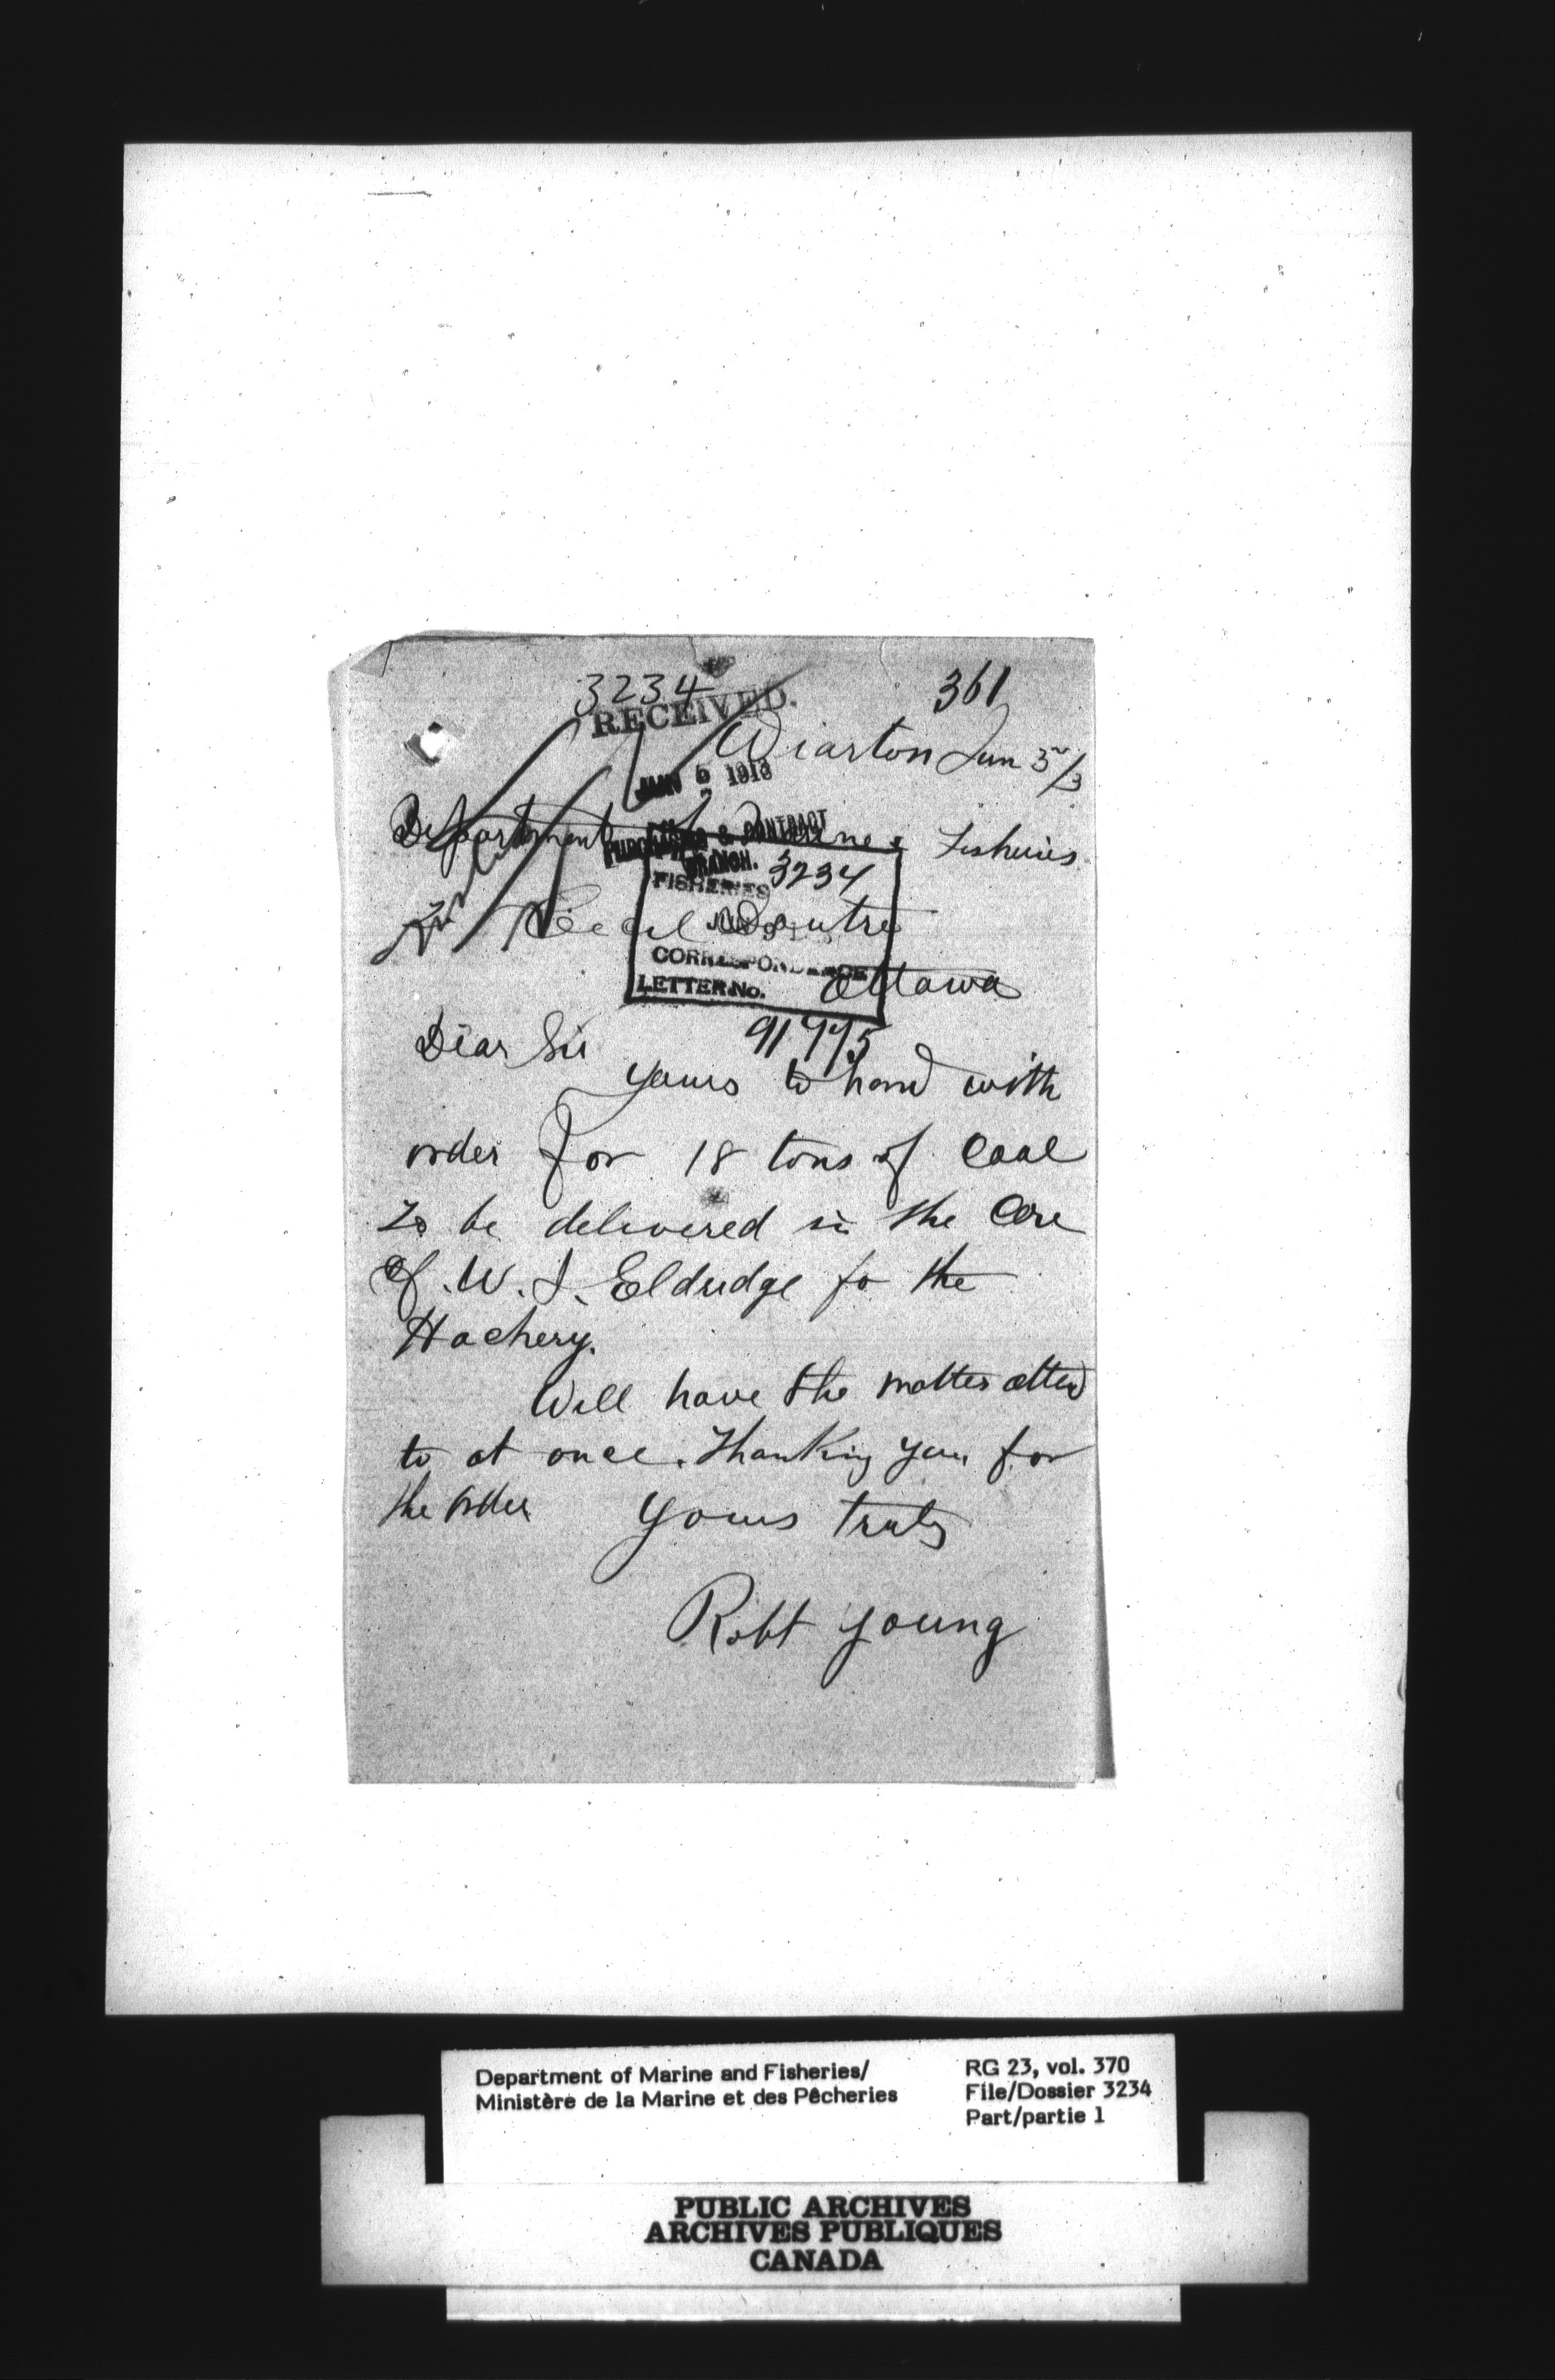 3234
361
RECEIVED.
Wiarton Jan 3rd/13
JAN 6 1913
Department of Marine & Fisheries
PURCHASING & CONTRACT
BRANCH.
3234
FISHERIES
Doutre
CORRESPONDENCE
LETTER No.
Ottawa
91975
Dear Sir
Yours to hand with
order for 18 tons of Coal
to be delivered in the Care
of W. J. Eldridge fo the
Hachery.
Will have the matter attend
to at once. Thanking you for
the order
Yours truly
Robt Young
Department of Marine and Fisheries/
Ministère de la Marine et des Pêcheries
RG 23, vol. 370
File/Dossier 3234
Part/partie 1
PUBLIC ARCHIVES
ARCHIVES PUBLIQUES
CANADA